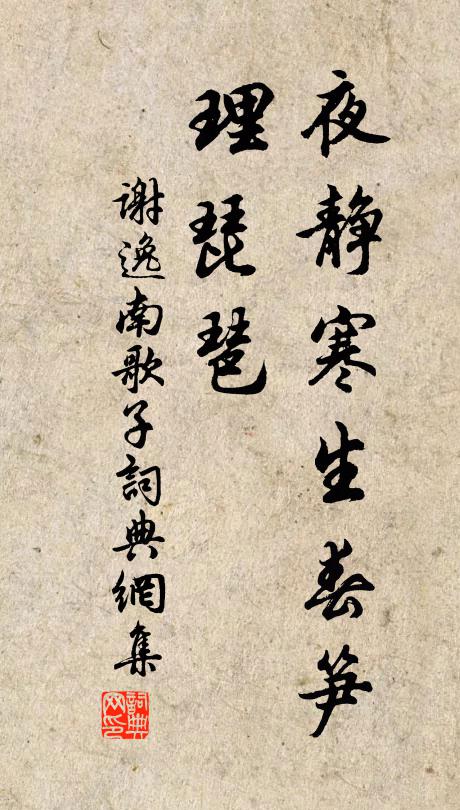 夜静寒生春笋
理琵琶
謝逸南歌子詞典網集
詞典網印